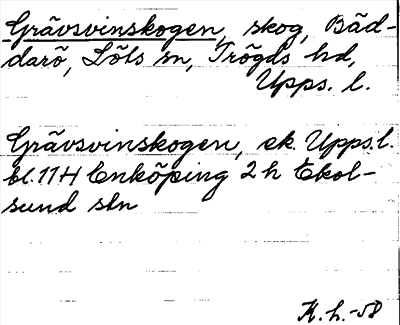 Grävsvinskogen, skog, Bäd-
darö, Löts sn, Trögds hd,
Upps. l.
Grävsvinskogen, ek. Upps. l.
bl. 11H Enköping 2 h Ekol-
sund stn
K. h. -58